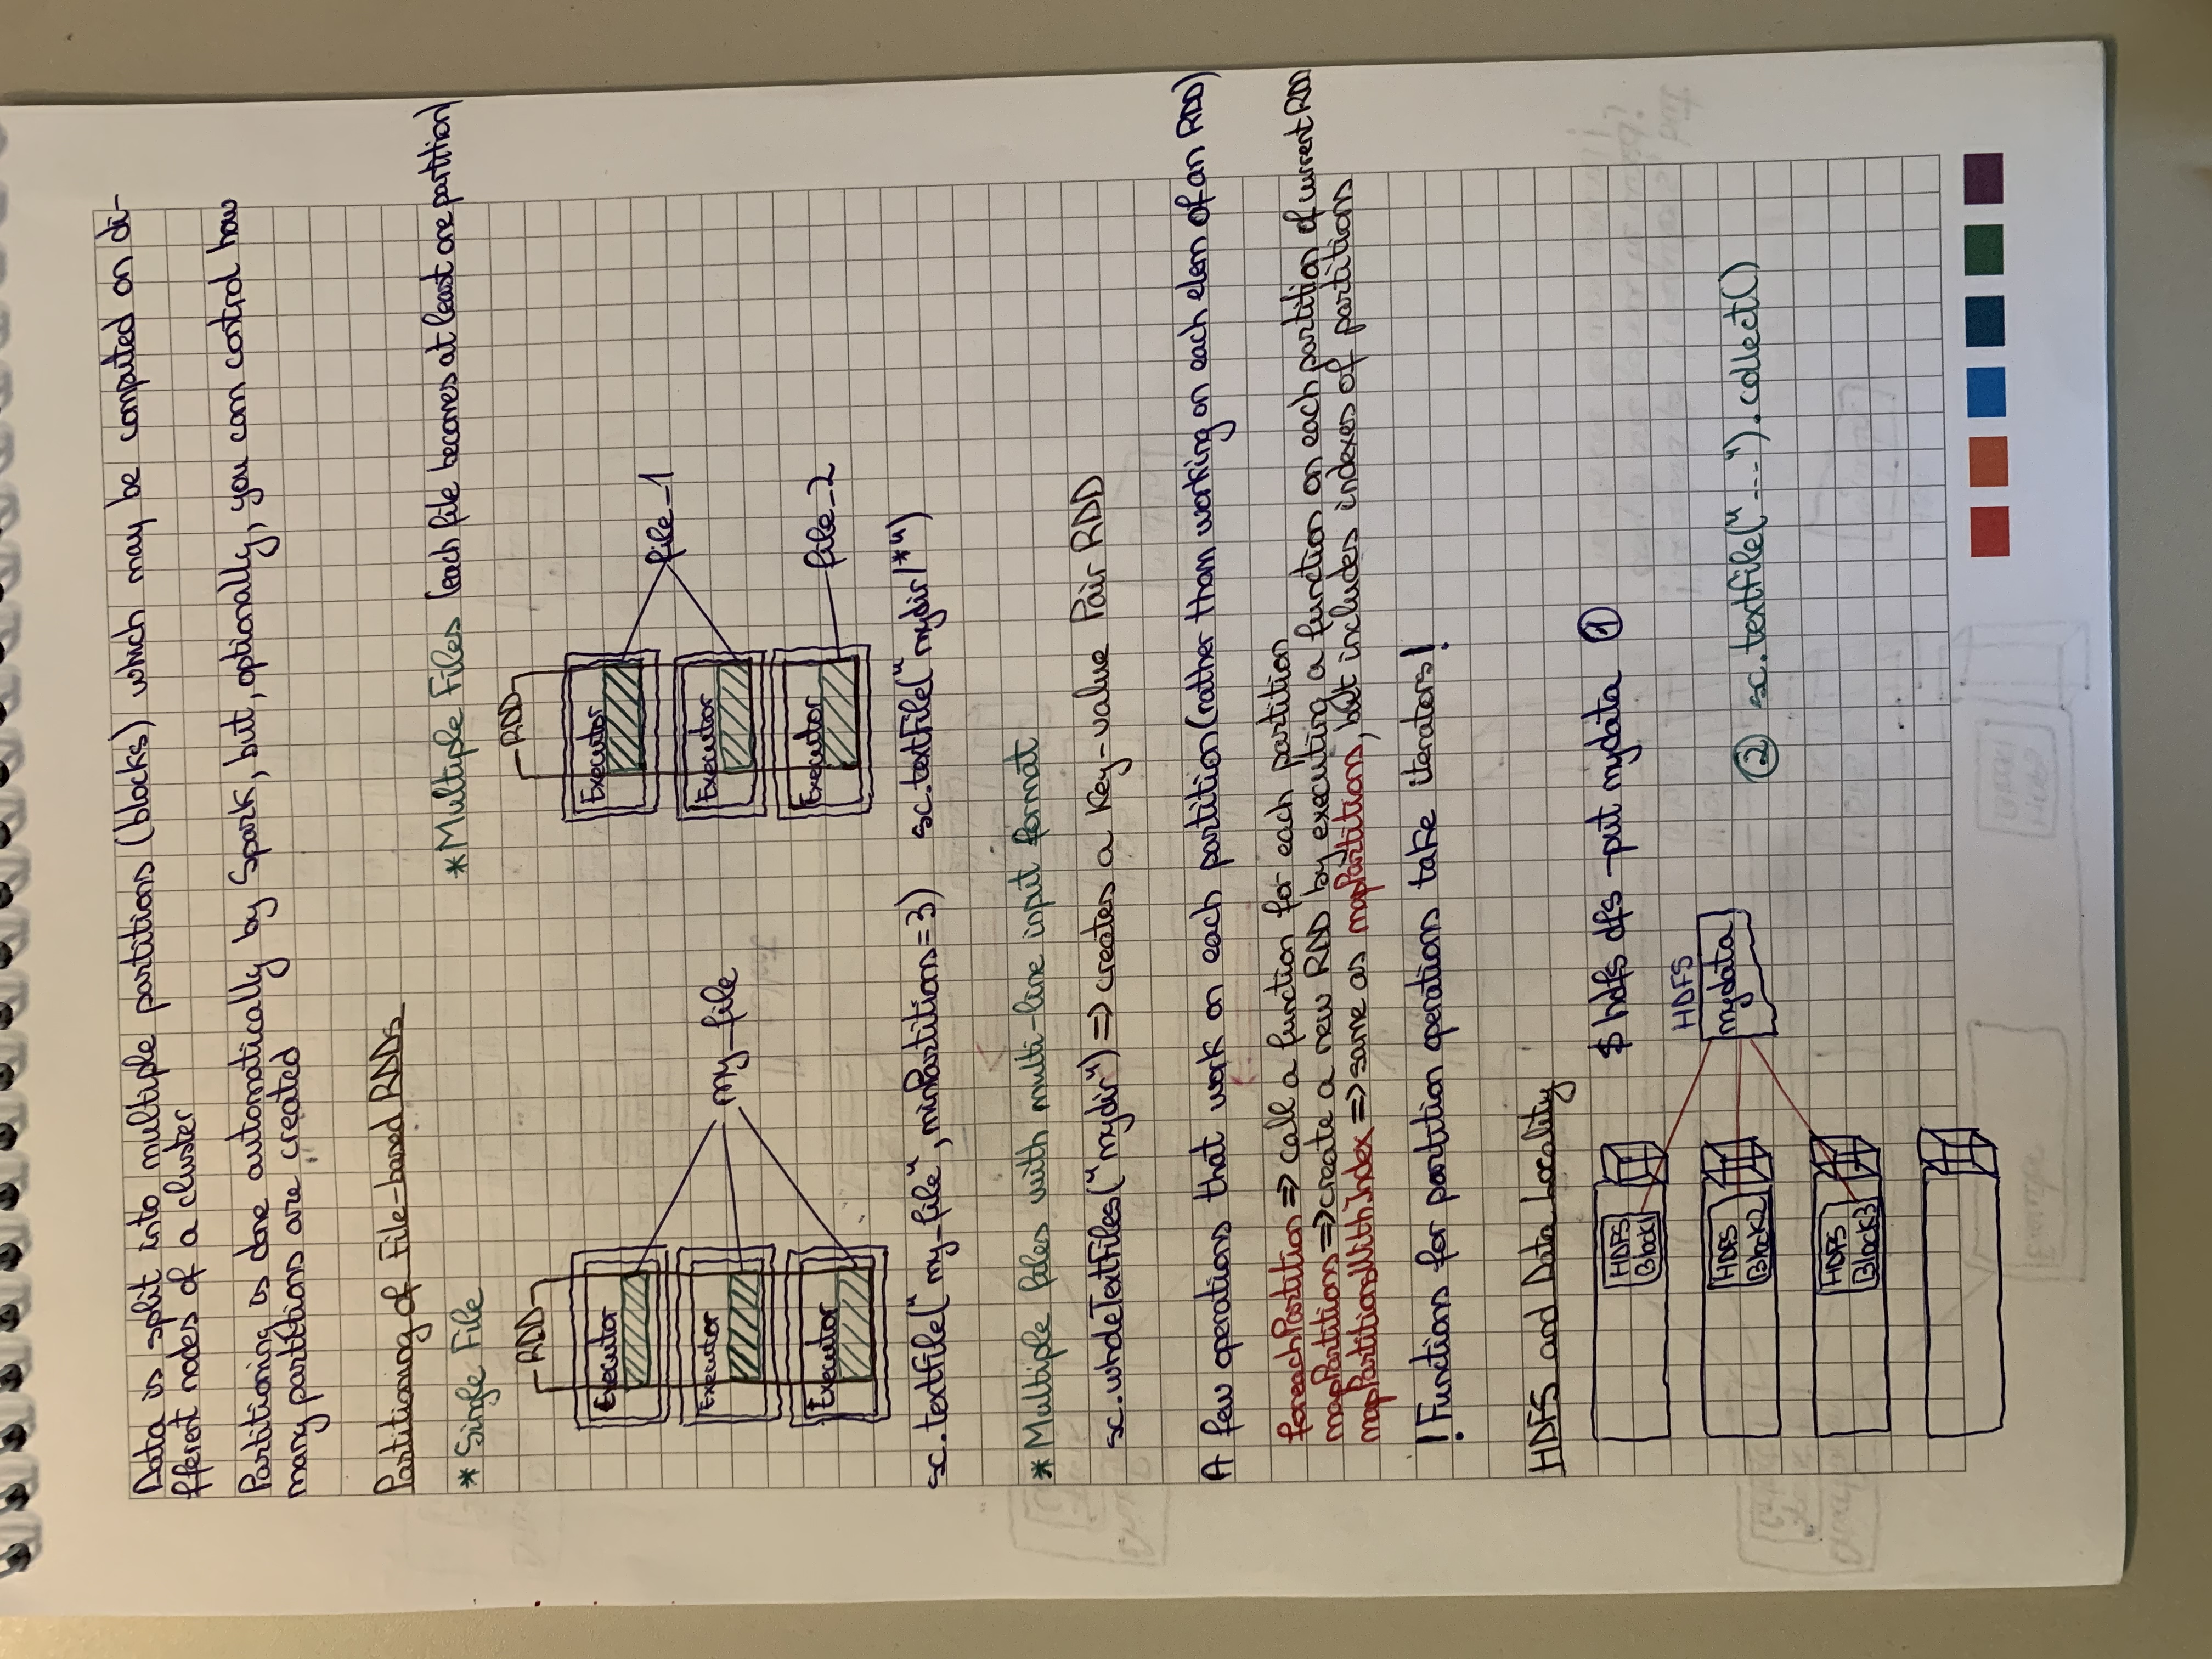 Data is split into multiple partitions (blocks) which may be computed on di-
fferent nodes of a cluster
Partitioning is done automatically by Spark, but, optionally, you can control how
many partitions are created
Partitioning of File-based RDDs
* Single File
* Multiple Files (each file becomes at least one partition)
RDD
Executor
Executor
Executor
my_file
RDD
Executor
Executor
Executor
file_1
file_2
sc.textfile("my_file", minPartitions=3)
sc.textFile("mydir/*")
* Multiple files with multi-line input format
sc.wholeTextFiles("mydir") => creates a Key-value Pair RDD
A few operations that work on each partition (rather than working on each elem of an RDD)
foreachPartition => call a function for each partition
mapPartitions => create a new RDD by executing a function on each partition of current RDD
mapPartitionsWithIndex => same as mapPartitions, but includes indexes of partitions
! Functions for partition operations take iterators!
HDFS and Data Locality
$ hdfs dfs -put mydata ①
HDFS
Block1
HDFS
Block2
HDFS
Block3
HDFS
mydata
② sc.textfile("---").collect()